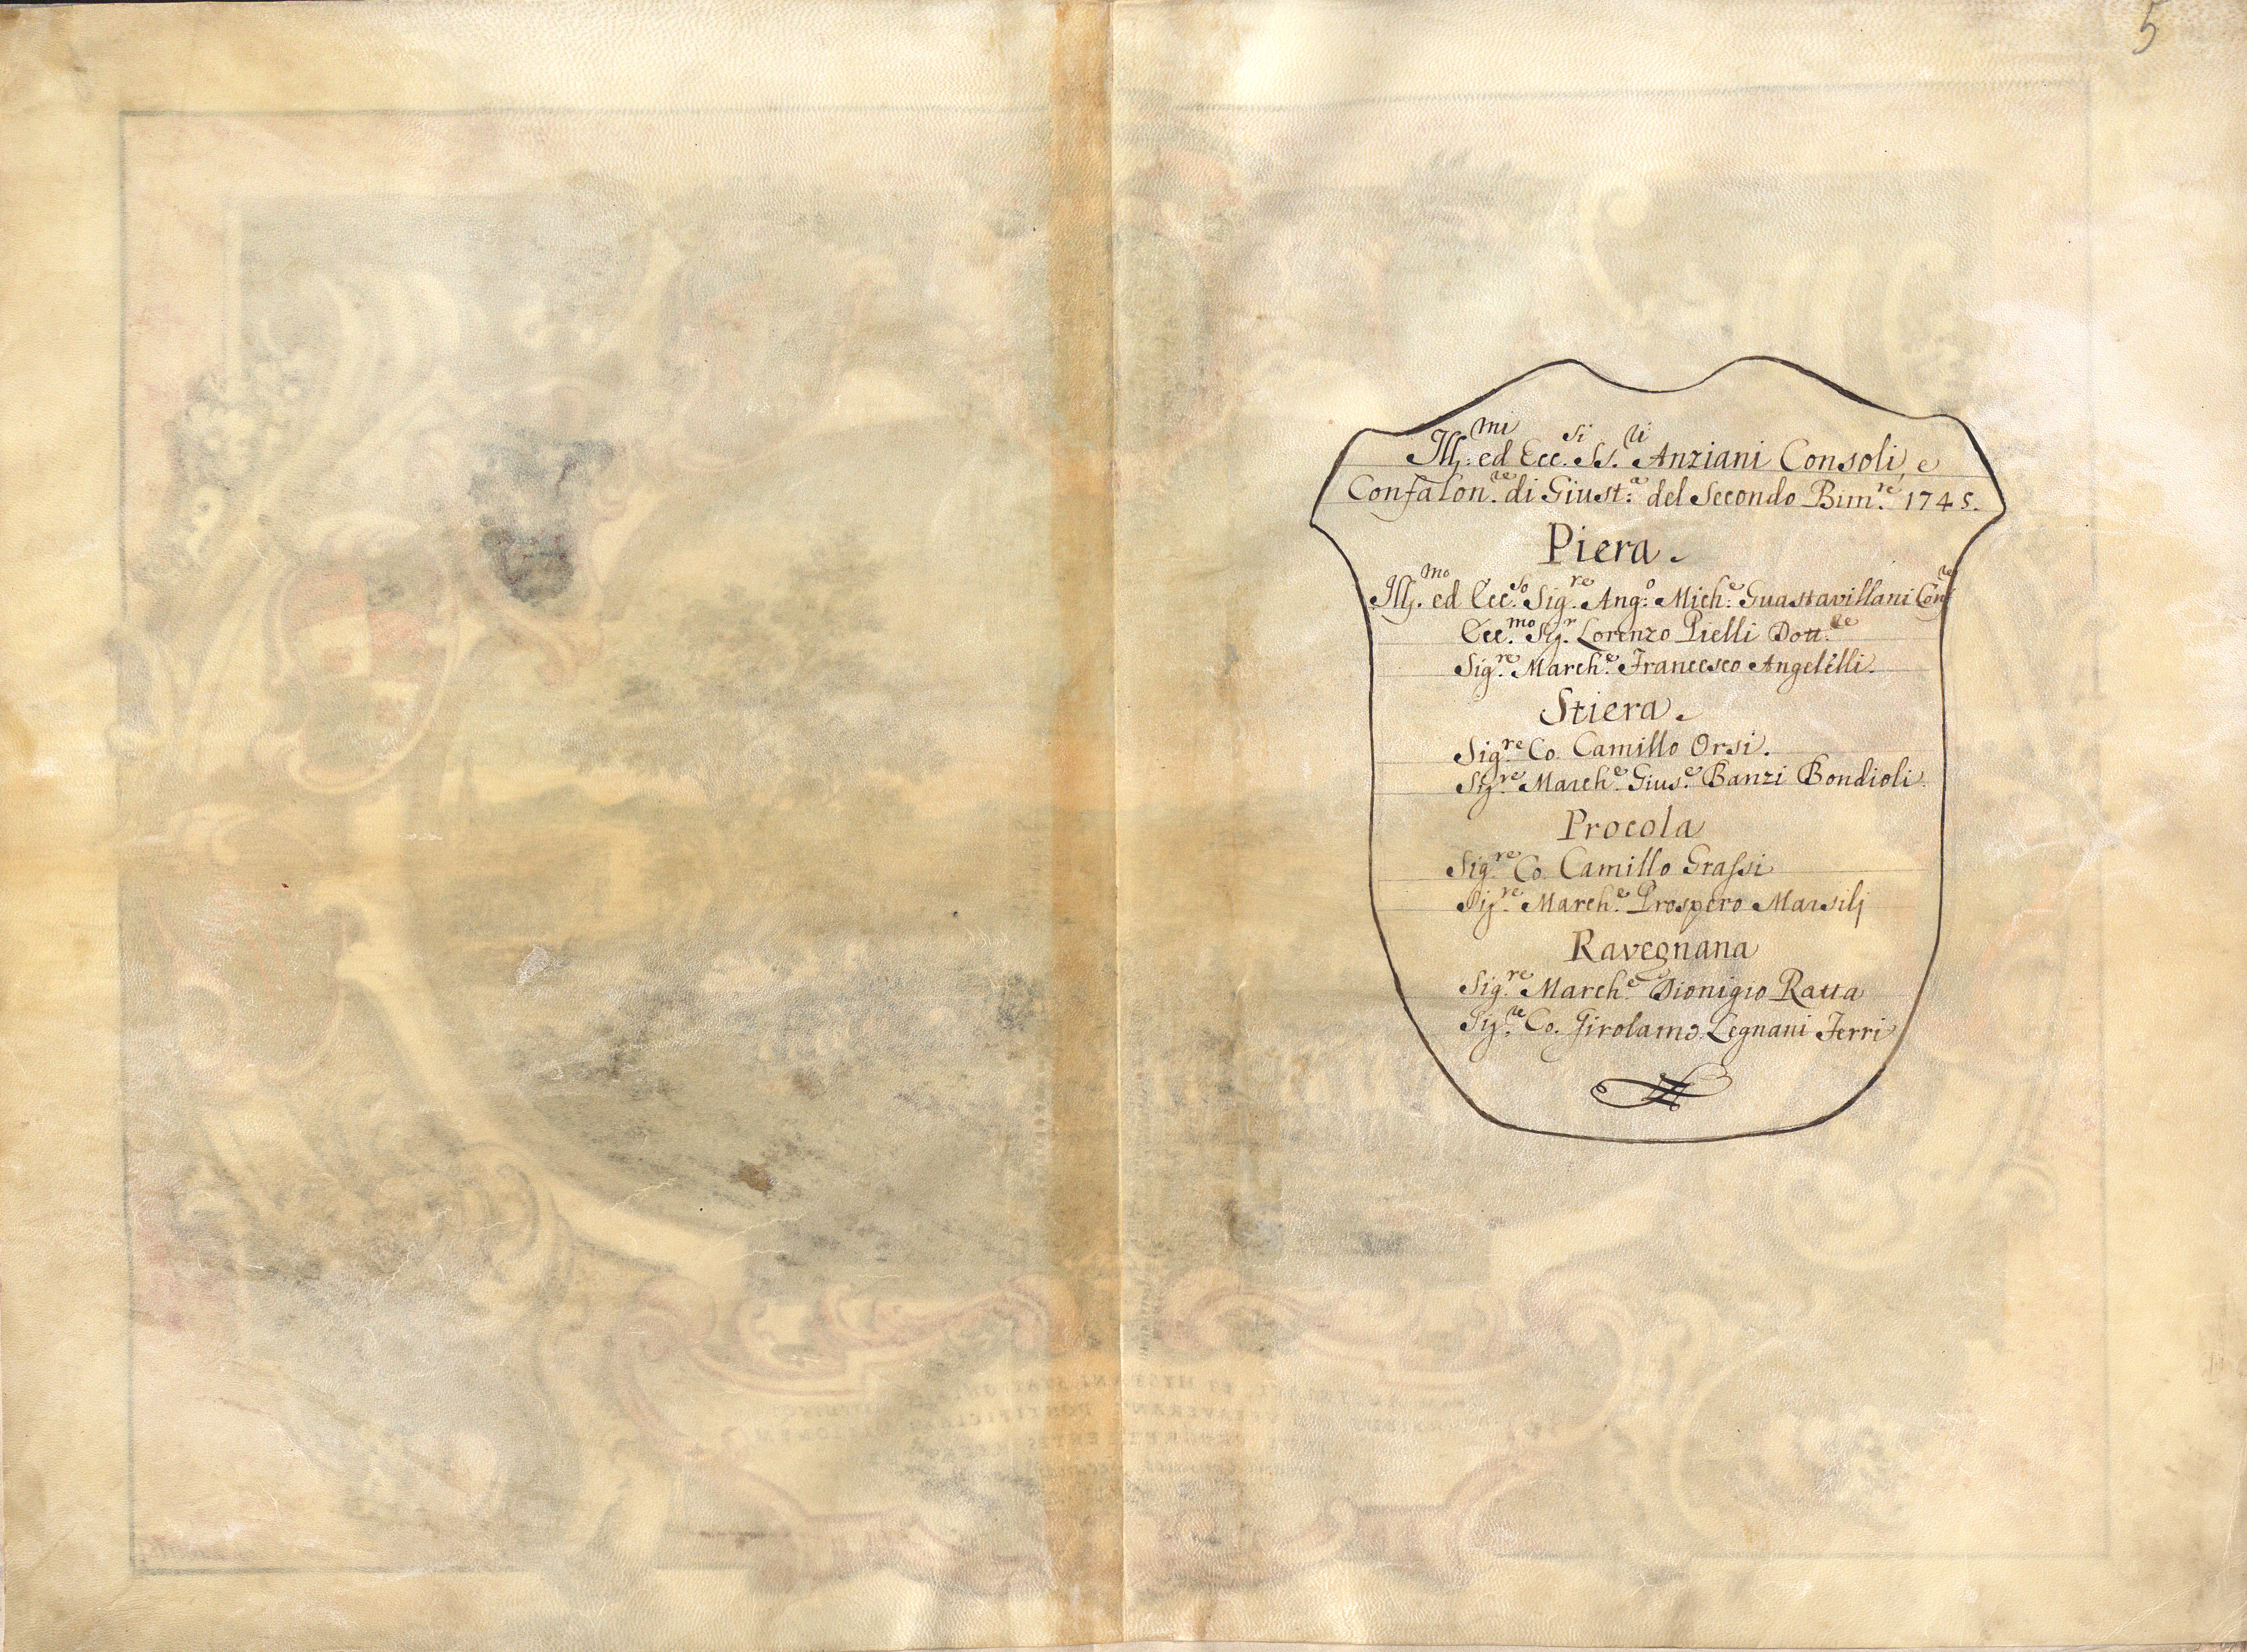 5
Ill:mi ed Ecc.si SS.ri Anziani Consoli, e
Confalon.re di Giust:a del Secondo Bim.re 1745.
Piera.
Ill.mo ed Ecc.so Sig.re Ang:o Mich:e Guastavillani Conf.re
Ecc.mo Sig.r Lorenzo Pielli Dott.re
Sig.re March.e Francesco Angelelli.
Stiera.
Sig.re Co. Camillo Orsi.
Sig.re March.e Gius.e Banzi Bondioli.
Procola
Sig.re Co. Camillo Grassi
Sig.re March.e Prospero Marsilj
Ravegnana
Sig.re March.e Dionigio Ratta
Sig.re Co. Girolamo Legnani Ferri